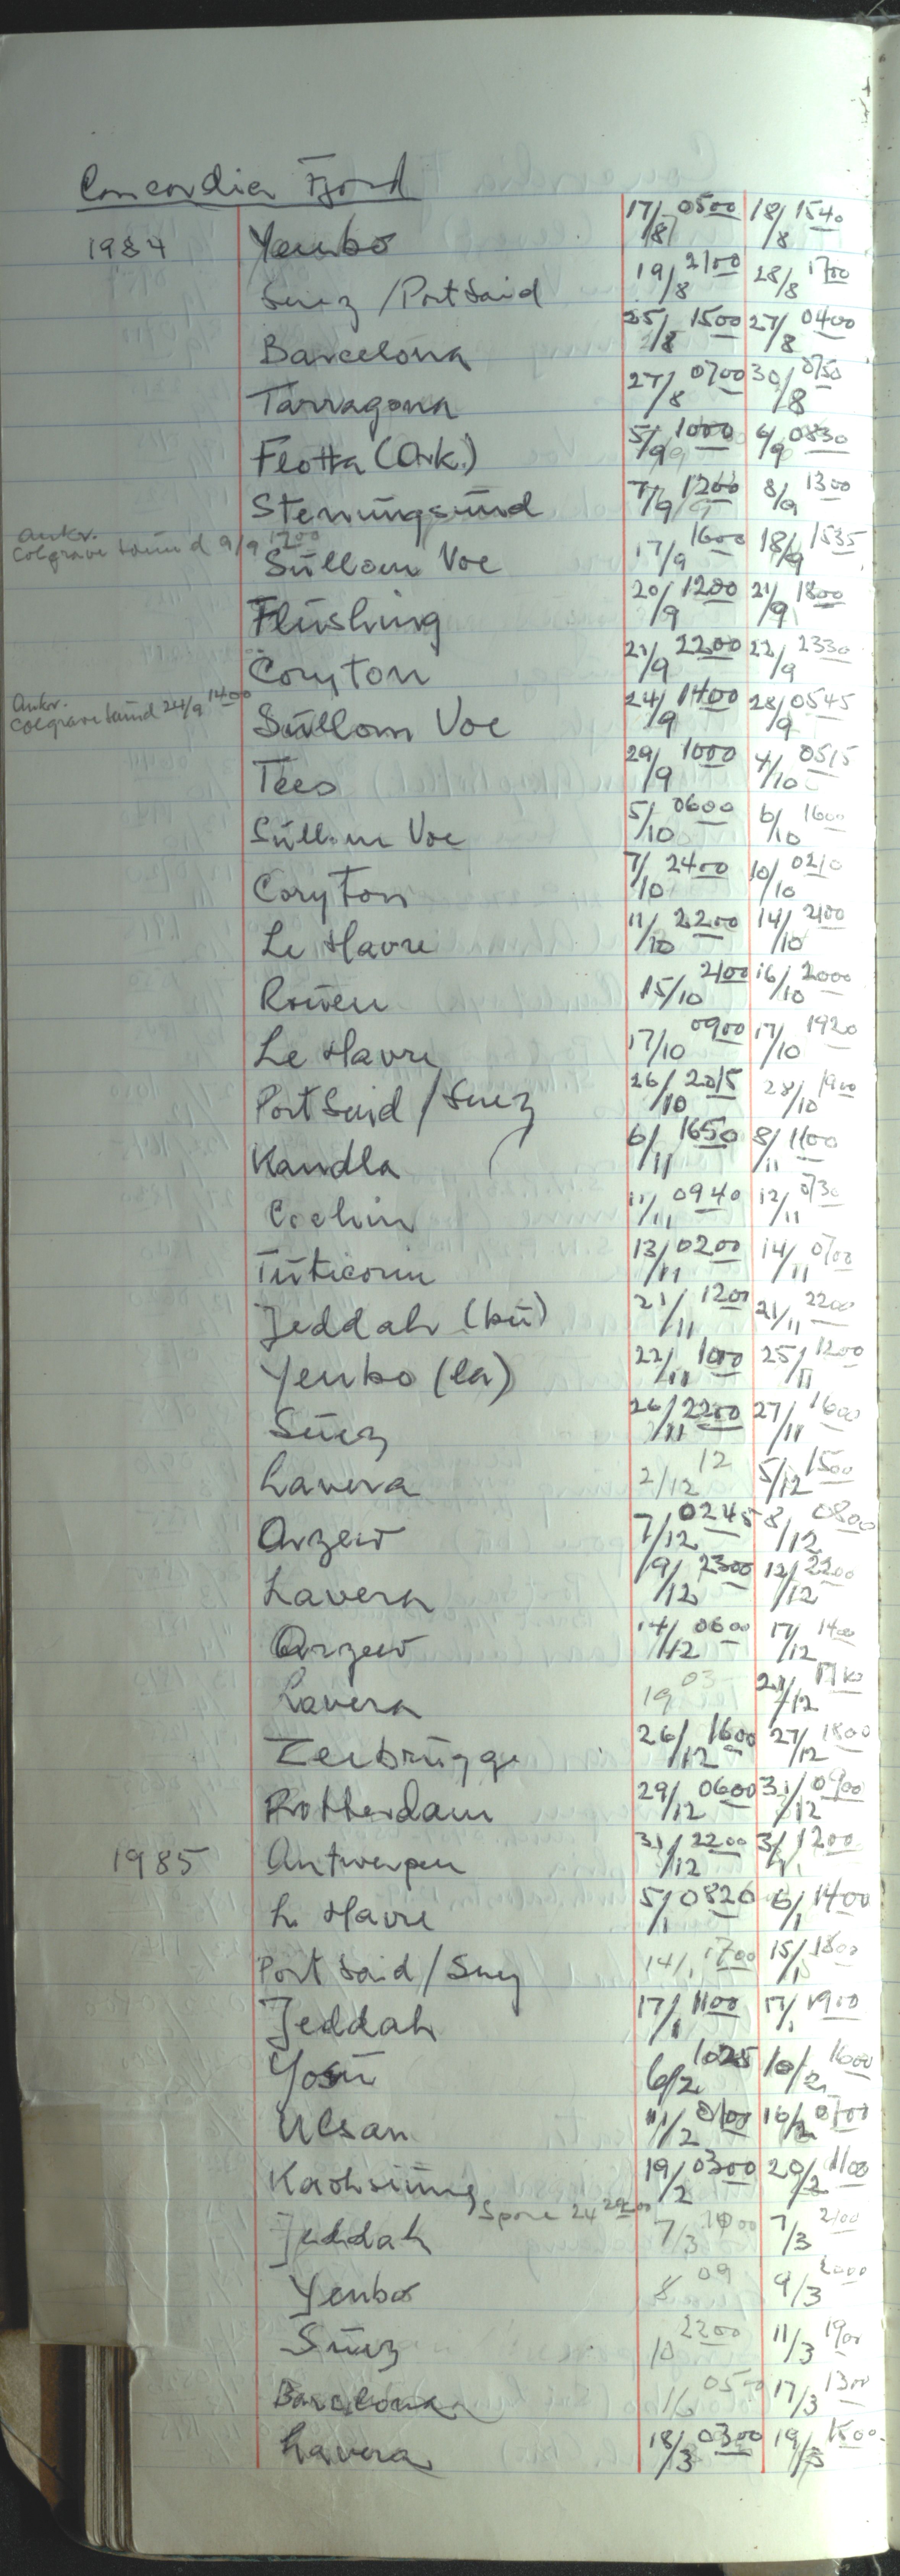 Concordia Fjord
1984 Yenbo 17/8 0500 18/8 1540
Suez / Port Said 19/8 2100 28/8 1700
Barcelona 25/8 1500 27/8 0400
Tarragona 27/8 0700 30/8 0750
Flotta (Ork.) 5/9 1000 6/9 0830
Stenungsund 7/9 1200 8/9 1300
Ankr.
Colgrave Sound 9/9 1200
Sullom Voe 17/9 1600 18/9 1535
Flushing 20/9 1200 21/9 1800
Coryton 21/9 2200 22/9 2330
Ankr.
Colgrave Sound 24/9 1400
Sullom Voe 24/9 1400 28/9 0545
Tees 29/9 1000 4/10 0515
Sullom Voe 5/10 0600 6/10 1600
Coryton 7/10 2400 10/10 0210
Le Havre 11/10 2200 14/10 2100
Rouen 15/10 2100 16/10 2000
Le Havre 17/10 0900 17/10 1920
Port Said / Suez 26/10 2015 28/10 1900
Kandla 6/11 1650 8/11 1100
Cochin 11/11 0940 12/11 0730
Tuticorin 13/11 0200 14/11 0700
Jeddah (bu) 21/11 1200 21/11 2200
Yenbo (la) 22/11 1000 25/11 1200
Suez 26/11 2200 27/11 1600
Lavera 2/12 12 5/12 1500
Arzew 7/12 0245 8/12 0800
Lavera 9/12 2300 12/12 2200
Arzew 14/12 0600 17/12 1400
Lavera 19 03 21/12
Zeebrügge 26/12 1600 27/12 1800
Rotterdam 29/12 0600 31/12 0900
1985 Antwerpen 31/12 2200 3/1 1200
L. Havre 5/1 0820 6/1 1400
Port Said / Suez 14/1 1700 15/1 1800
Jeddah 17/1 1100 17/1 1900
Yosu 6/2 1025 10/2 1600
Ulsan 11/2 0100 16/2 0700
Kaohsiung 19/2 0300 20/2 1100
Spore 24 2200
Jeddah 7/3 1000 7/3 2100
Yenbo 8 09 9/3 2000
Suez 10 2200 11/3 1900
Barcelona 0500 17/3 1300
Lavera 18/3 0300 19/3 1500